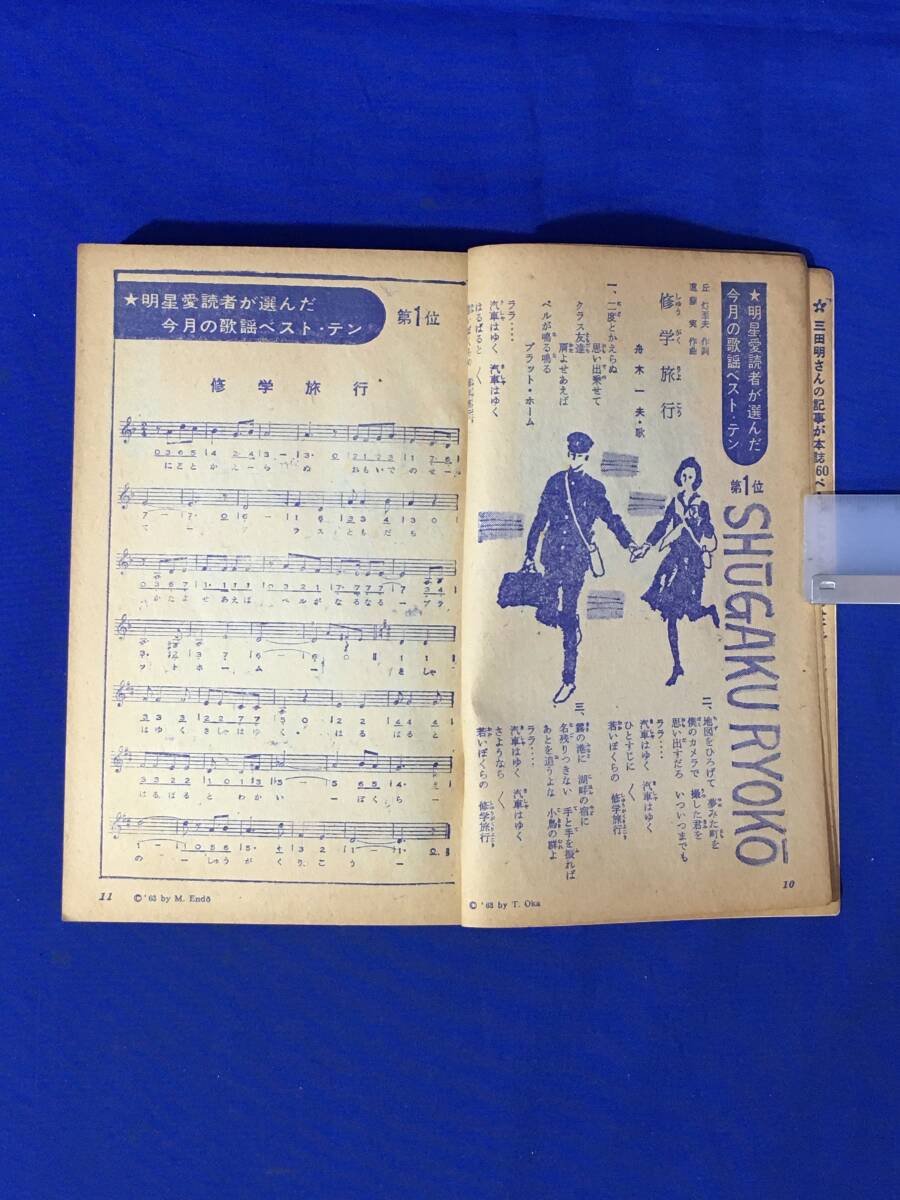 ★明星愛読者が選んだ
今月の歌謡ベスト・テン
第1位
SHŪGAKU RYOKŌ
丘 灯至夫 作詞
遠藤 実 作曲
修学旅行
しゅうがくりょこう
舟木一夫・歌
一、二度とかえらぬ
思い出乗せて
クラス友達
肩よせあえば
ベルが鳴る鳴る
プラット・ホーム
ララ……
汽車はゆく 汽車はゆく
はるばると
二、
地図をひろげて 夢みた町を
僕のカメラで 撮した君を
思い出すだろ いついつまでも
ララ……
汽車はゆく 汽車はゆく
ひとすじに
若いぼくらの 修学旅行
三、
霧の港に 湖畔の宿に
名残りつきない 手と手を振れば
あとを追うよな 小鳥の群よ
ララ……
汽車はゆく 汽車はゆく
さようなら
若いぼくらの 修学旅行
10
© '63 by T. Oka
★明星愛読者が選んだ
今月の歌謡ベスト・テン
第1位
修学旅行
にどとかえーらぬ おもいでのせー
てー クラスともだち
かたよせあえば ベルがなるなるープラ
ットホームー きしゃ
はゆくきしゃはゆく はるばると
はるばるとわかい ーぼくらー
のーしゅうがくりょこうー
11
© '63 by M. Endō
三田明さんの記事が本誌60ペ